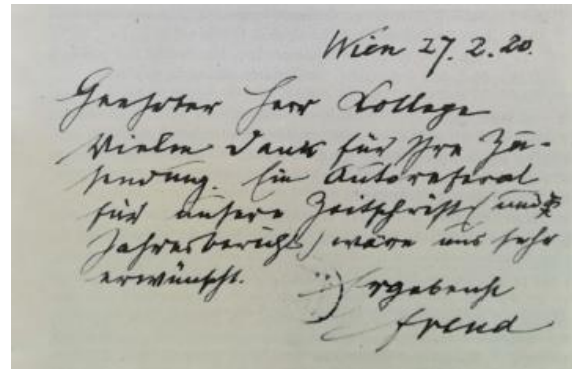 Wien 27. 2. 20.
Geehrter Herr College
Vielen Dank für Ihre Zu-
sendung. Ein Autoreferat
für unsere Zeitschrift (und
Jahresbericht) wäre uns sehr
erwünscht.
Ergebenst
Freud